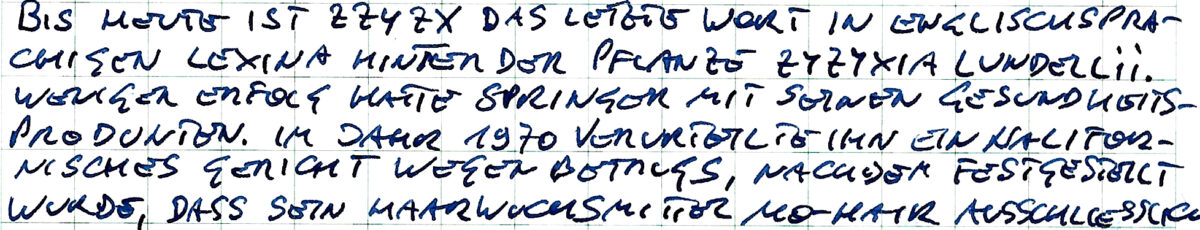 BIS HEUTE IST ZZYZX DAS LETZTE WORT IN ENGLISCHSPRA-
CHIGEN LEXIKA HINTER DER PFLANZE ZYZYXIA LUNDELLII.
WENIGER ERFOLG HATTE SPRINGER MIT SEINEN GESUNDHEITS-
PRODUKTEN. IM JAHR 1970 VERURTEILTE IHN EIN KALIFOR-
NISCHES GERICHT WEGEN BETRUGS, NACHDEM FESTGESTELLT
WURDE, DASS SEIN HAARWUCHSMITTEL MO-HAIR AUSSCHLIESSLICH